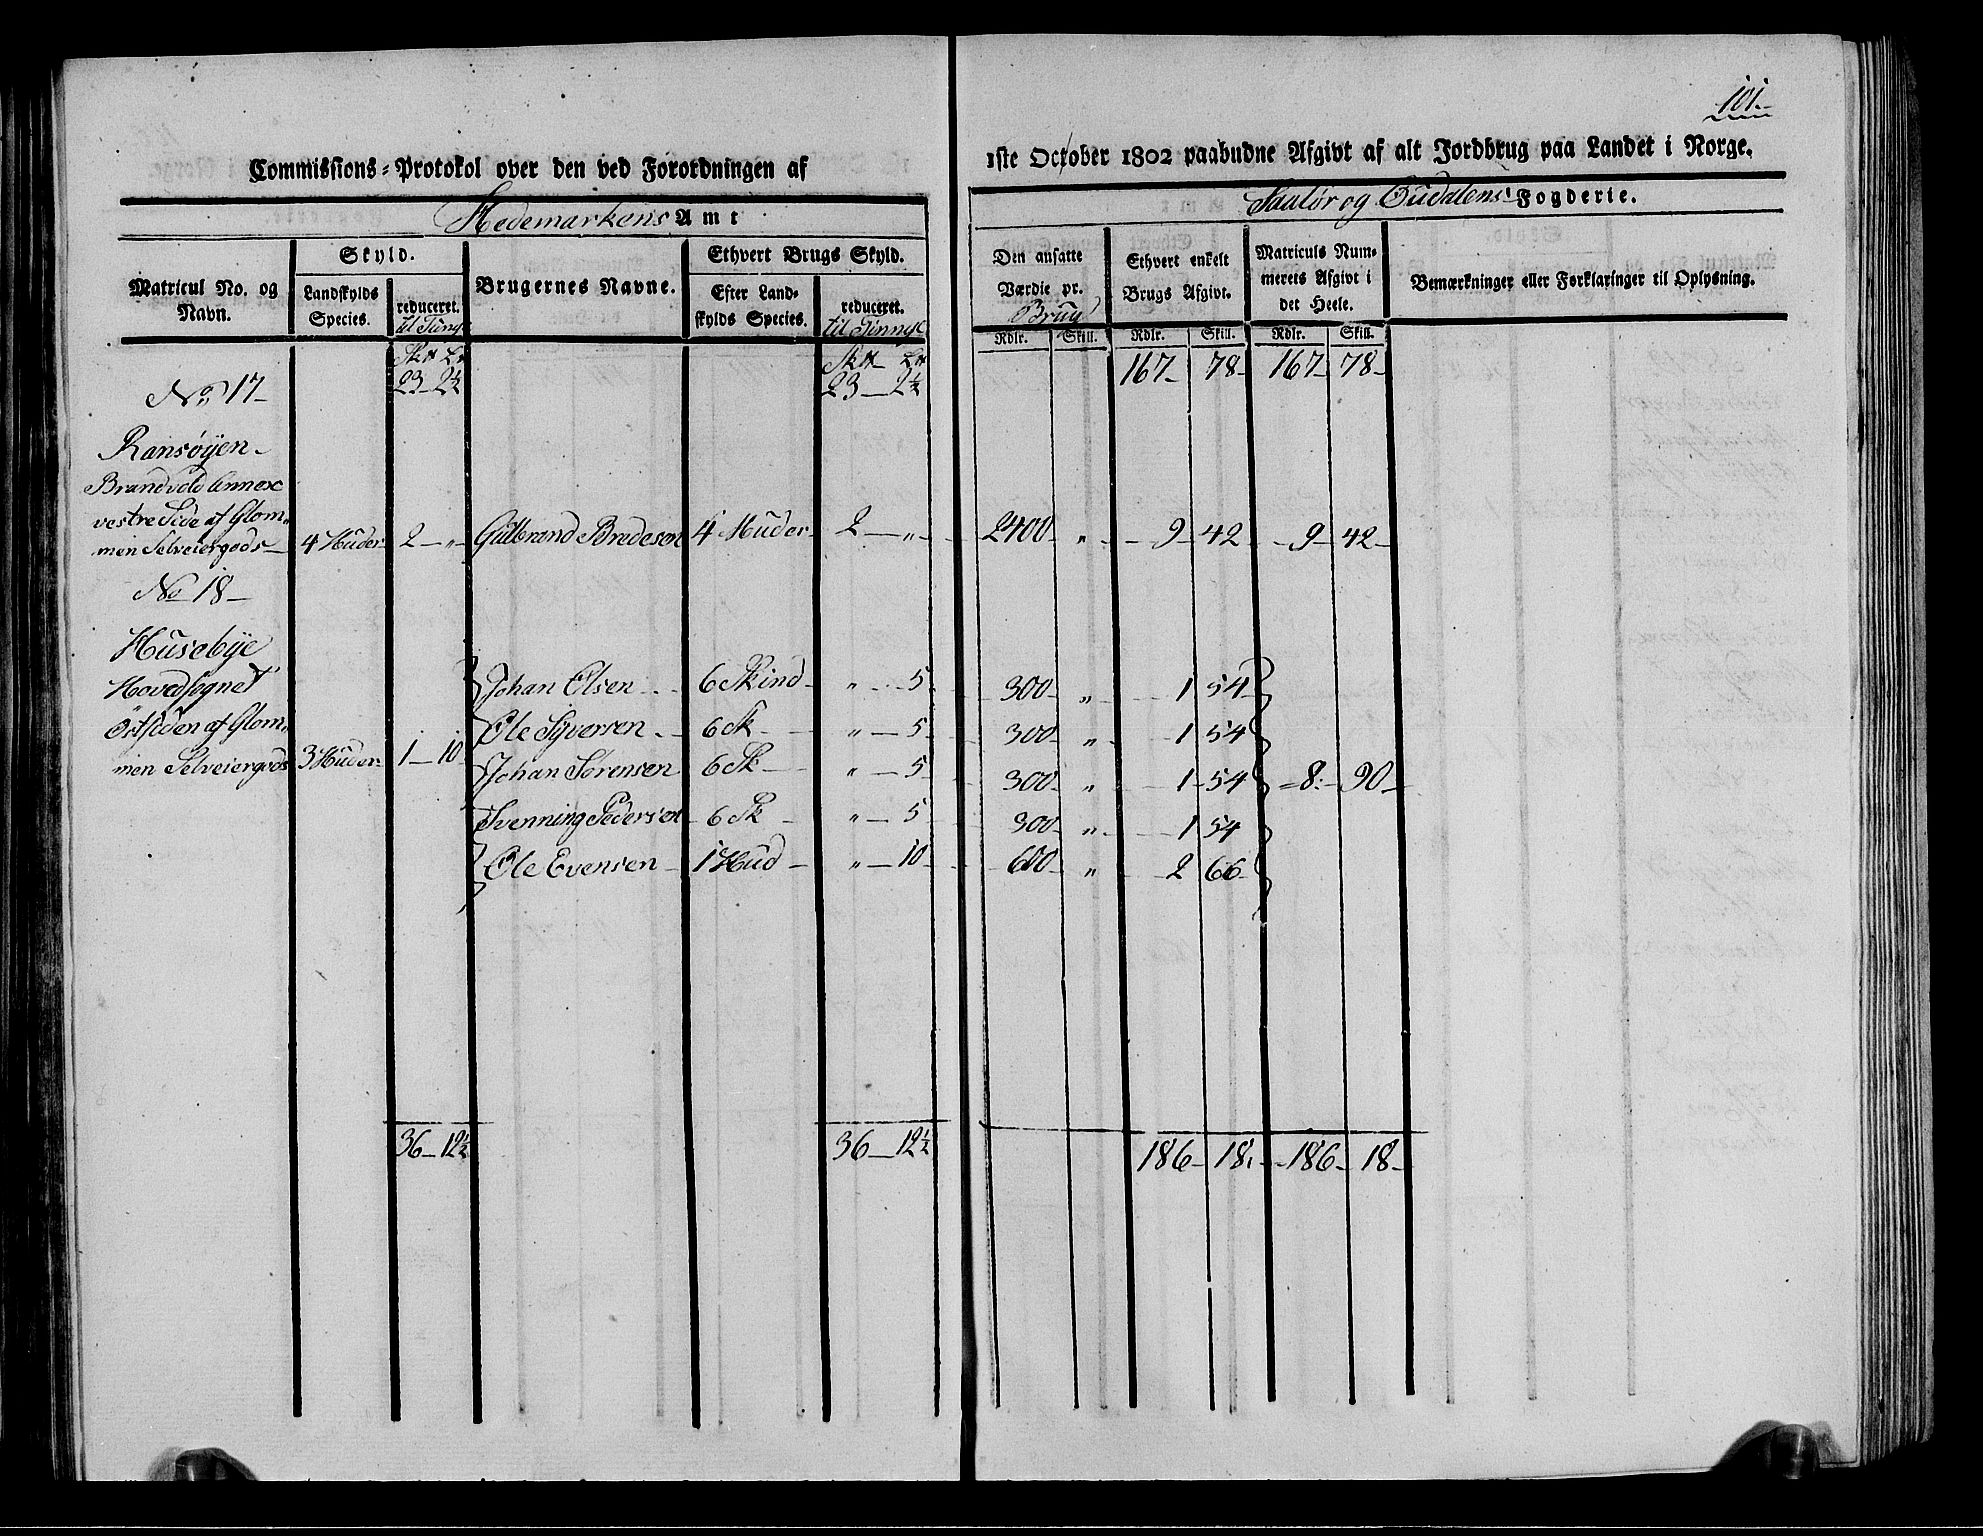 101.
Commissions=Protokol over den ved Forordningen af
1ste October 1802 paabudne Afgivt af alt Jordbrug paa Landet i Norge.
Hedemarkens Amt
Soulør og Oudalens Fogderie.
Matricul No. og Navn.
Skyld.
Landskylds Species.
reduceret.
Brugernes Navne.
Ethvert Brugs Skyld.
Efter Land-skylds Species.
reduceret.
Den ansatte Værdie pr. Brug
Ethvert enkelt Brugs Afgivt.
Matriculs Num-merets Afgivt i det Heele.
Bemærkninger eller Forklaringer til Oplysning.
Rdlr. Skill. Rdlr. Skill. Rdlr. Skill.
23 – 2½ 23 – 2½ 167 – 78 – 167 – 78 –
No 17 –
Ransøÿen –
Brandvold Annex
vestre Side af Glom„
men Selveiergods – 4 Huder – 2 – „ – Gulbrand Bredesen 4 Huder – 2 – „ – 2400 – „ – 9 – 42 – 9 – 42 –
No 18 –
Huusebÿe
Hovedsognet Johan Olsen – 6 Skind – „ – 5 – 300 – „ – 1 54 –
Østsiden af Glom„ Ole Syversen – 6 Sk – „ – 5 – 300 – „ – 1 54
men Selveiergods 3 Huder – 1 – 10 – Johan Sørensen 6 Sk – „ – 5 – 300 – „ – 1 – 54 = 8 – 90 –
Svenning Pedersen – 6 Sk – „ – 5 – 300 – „ – 1 54
Ole Evensen – 1 Hud – „ – 10 – 600 – „ – 2 66 –
36 – 12½ 36 – 12½ 186 – 18 – 186 – 18 –